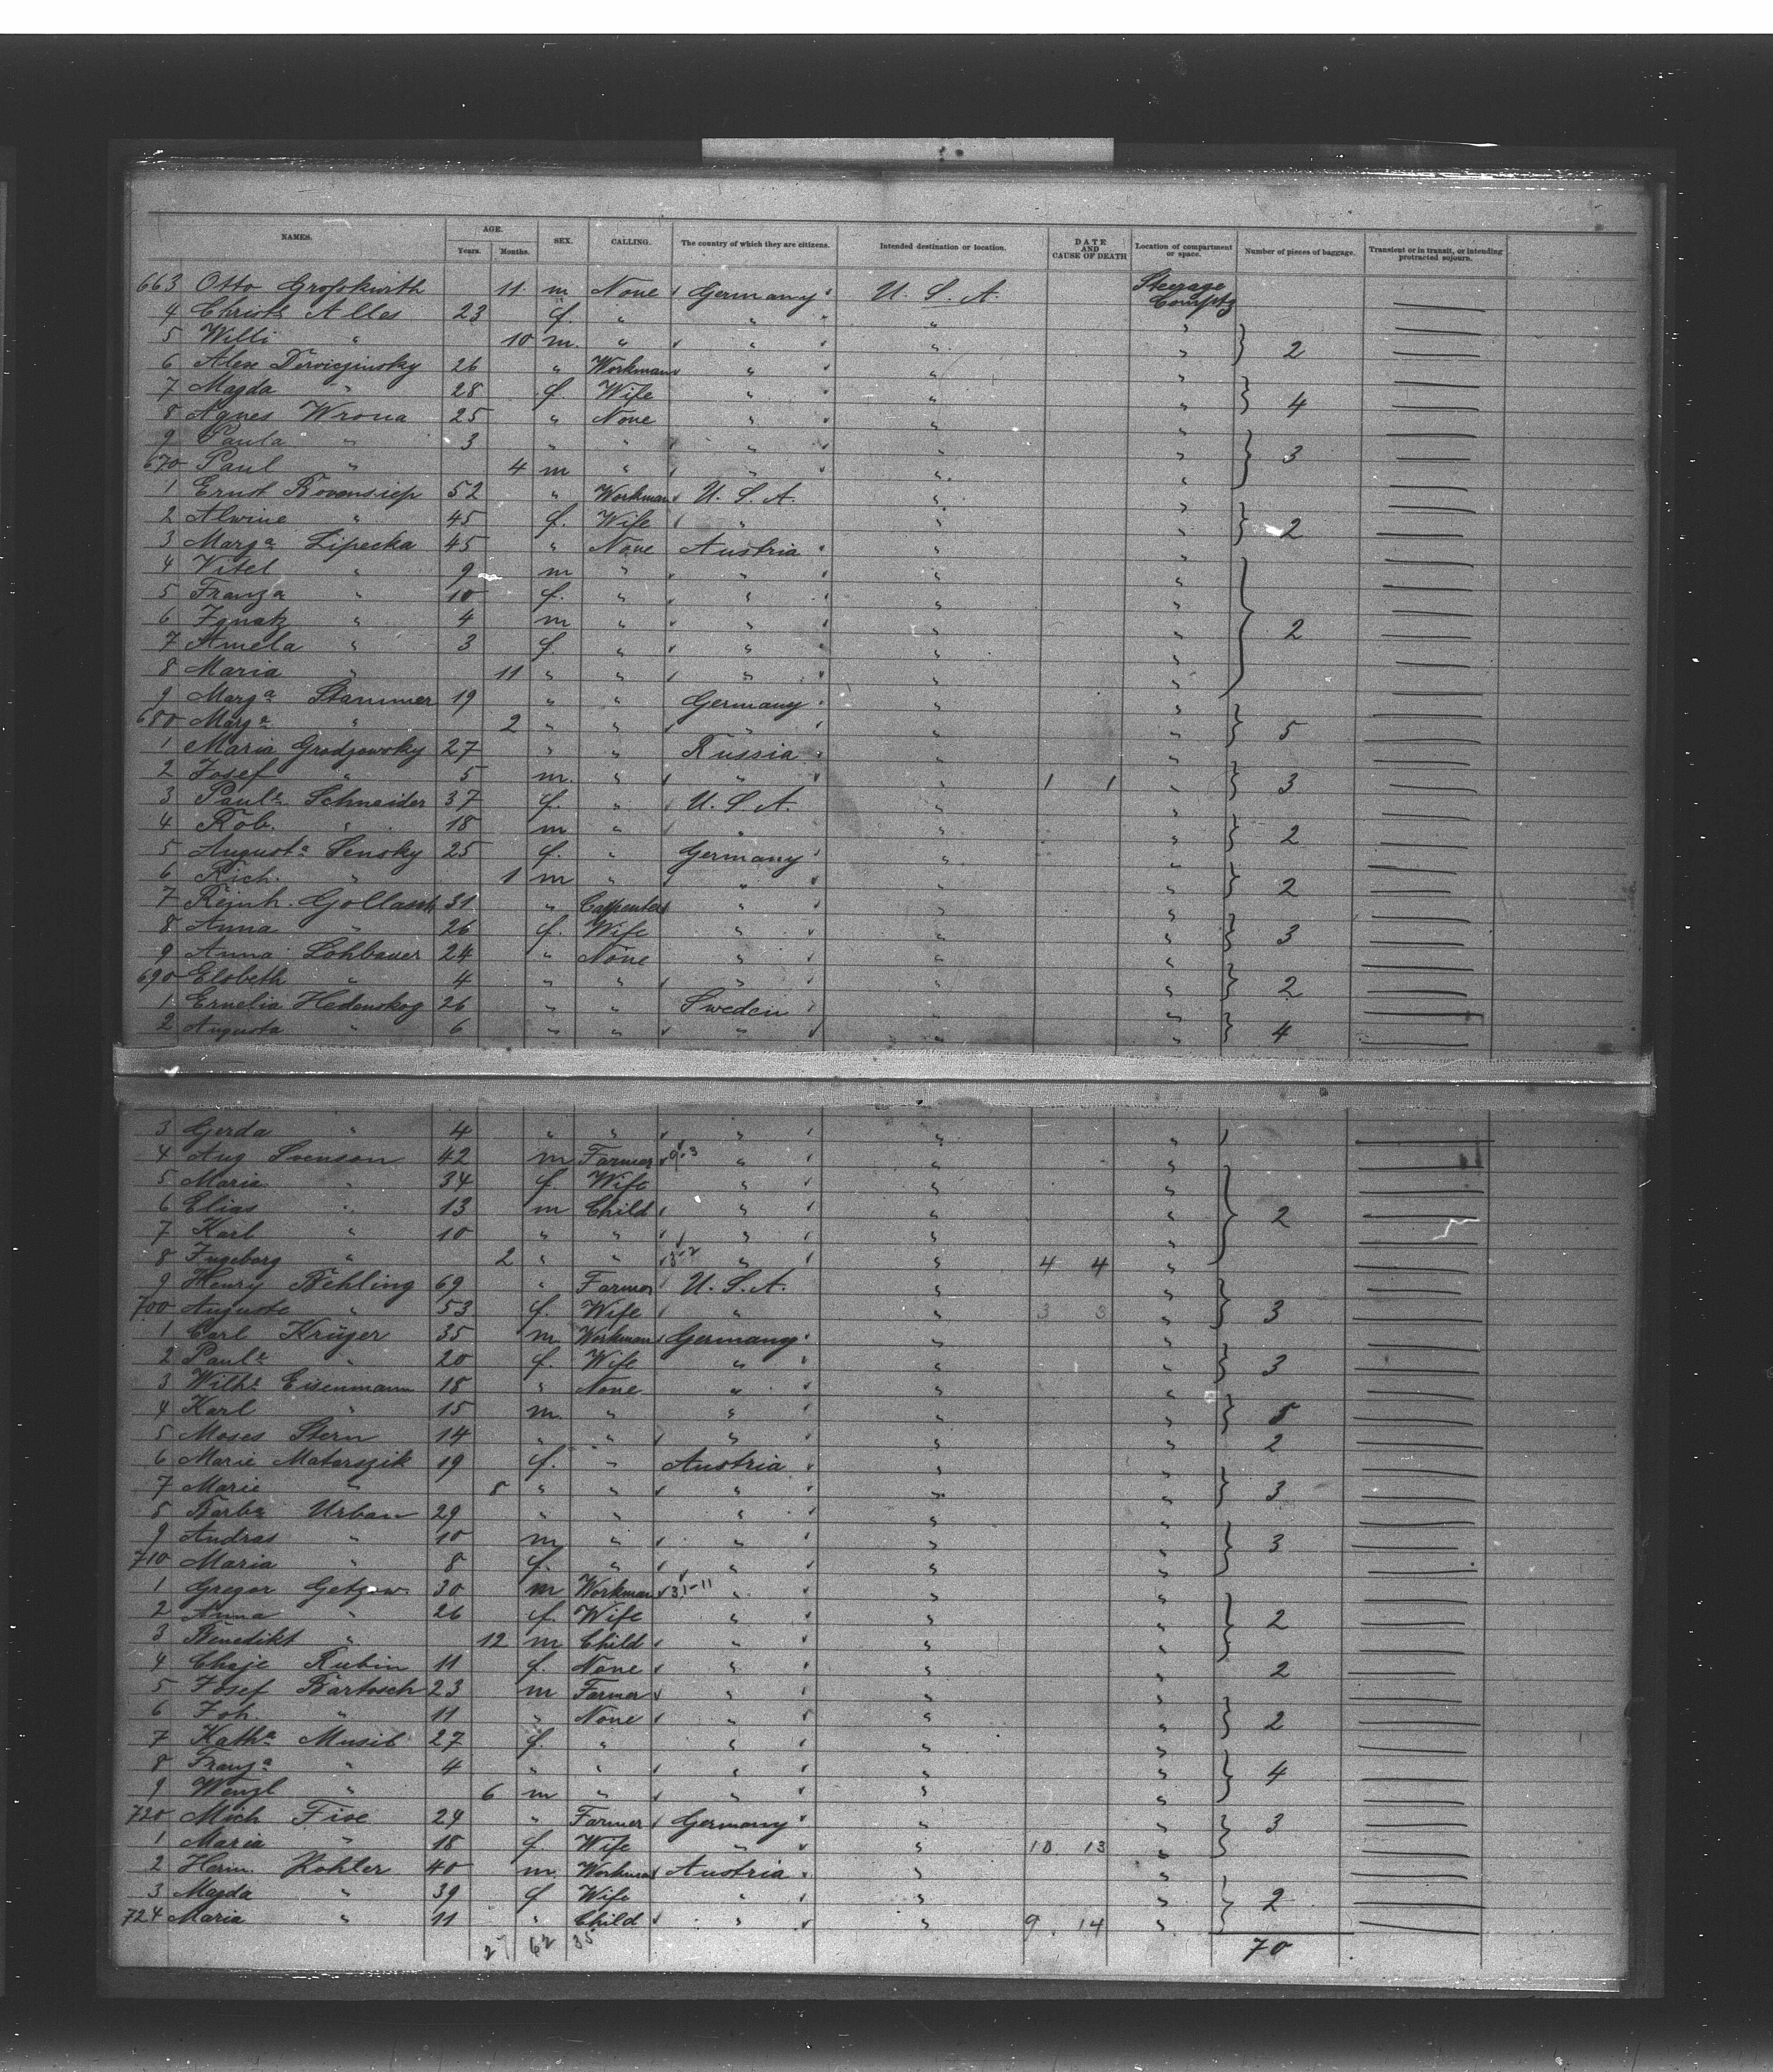 NAMES. AGE. Years. Months. SEX. CALLING. The country of which they are citizens. Intended destination or location. DATE AND CAUSE OF DEATH Location of compartment or space. Number of pieces of baggage. Transient or in transit, or intending protracted sojourn.
663 Otto Großkurth 11 m None Germany U. S. A. Steerage Compt
4 Christe Alles 23 f. " " "
5 Willi " 10 m. " " " " 2
6 Alex 26 " Workman " " "
7 Magda " 28 f. Wife " " " 4
8 Agnes Wrona 25 " None " " "
9 Paula " 3 " " " " "
670 Paul " 4 m " " " " 3
1 Ernst Bovensiep 52 " Workman U. S. A. " "
2 Alwine " 45 f. Wife " " " 2
3 Marga Lipecka 45 " None Austria " "
4 Vitel " 9 m " " " "
5 Franza " 10 f. " " " "
6 Ignatz " 4 m " " " " 2
7 Amela " 3 f. " " " "
8 Maria " 11 " " " " "
9 Marga Stammer 19 " " Germany " "
680 Marga " 2 " " " " " 5
1 Maria Grodzowsky 27 " " Russia " "
2 Josef " 5 m. " " " 1 1 " 3
3 Paula Schneider 37 f. " U. S. A. " "
4 Rob. " 18 m " " " " 2
5 Augusta Sensky 25 f. " Germany " "
6 Rich. " 1 m " " " " 2
7 Reinh. Gollasch 31 " Carpenter " " "
8 Anna " 26 f. Wife " " " 3
9 Anna Lohbauer 24 " None " " "
690 Elsbeth " 4 " " " " " 2
1 Ernelia Hedenskog 26 " " Sweden " "
2 Augusta " 6 " " " " " 4
3 Gerda " 4 " " " " "
4 Aug Svenson 42 m Farmer 9-3 " " "
5 Maria " 34 f. Wife " " "
6 Elias " 13 m Child " " " 2
7 Karl " 10 " " " " "
8 Ingeborg " 2 " " 3-2 " " 4 4 "
9 Henry Behling 69 " Farmer U. S. A. " "
700 Auguste " 53 f. Wife " " 3 3 " 3
1 Carl Krüger 35 m Workman Germany " "
2 Paula " 20 f. Wife " " " 3
3 Wilha Eisenmann 18 " None " " "
4 Karl " 15 m. " " " " 5
5 Moses Stern 14 " " " " " 2
6 Marie Matarszik 19 f. " Austria " "
7 Marie " 8 " " " " " 3
8 Barba Urban 29 " " " " "
9 Andras " 10 m " " " " 3
710 Maria " 8 f. " " " "
1 Gregor Getzow 30 m Workman 31-11 " " "
2 Anna " 26 f. Wife " " " 2
3 Benedikt " 12 m Child " " "
4 Chaje Rubin 11 f. None " " " 2
5 Josef Bartosch 23 m Farmer " " "
6 Joh. " 11 " None " " " 2
7 Katha Musil 27 f. " " " "
8 Franza " 4 " " " " " 4
9 Wenzl " 6 m " " " "
720 Mich Five 24 " Farmer Germany " " 3
1 Maria " 18 f. Wife " " 10 13 "
2 Herm. Kohler 40 m. Workman Austria " "
3 Magda " 39 f Wife " " " 2
724 Maria " 11 " Child " " 9. 14 "
27 62 35 70